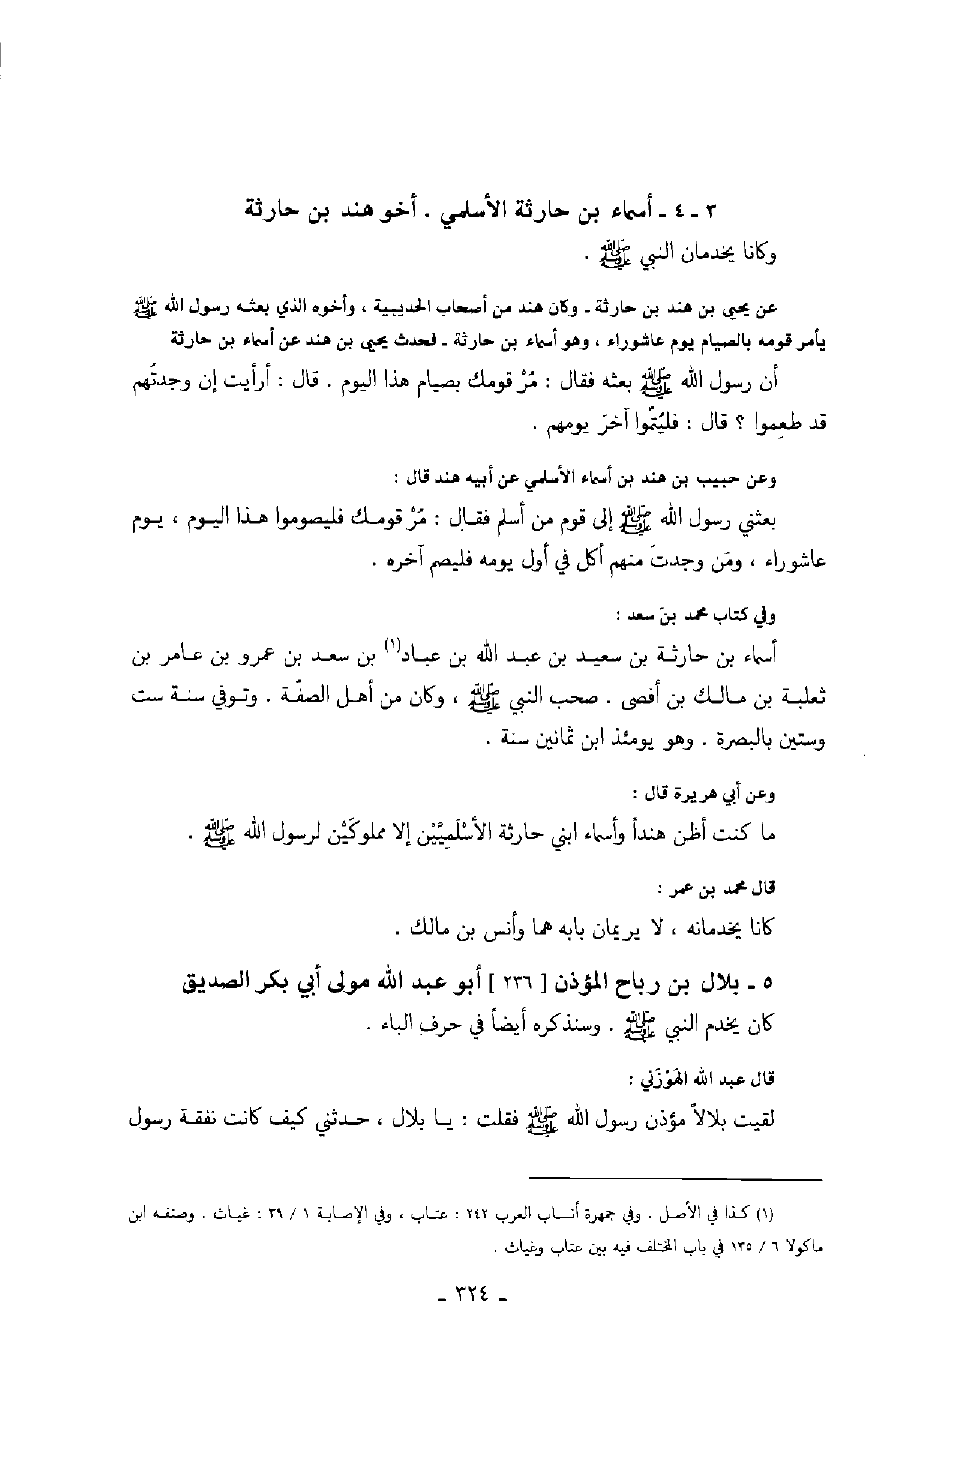 ٣ ـ ٤ ـ أسماء بن حارثة الأسلمي . أخو هند بن حارثة
وكانا يخدمان النبي ﷺ .
عن يحيى بن هند بن حارثة ـ وكان هند من أصحاب الحديبية ، وأخوه الذي بعثه رسول الله ﷺ
يأمر قومه بالصيام يوم عاشوراء ، وهو أسماء بن حارثة ـ فحدث يحيى بن هند عن أسماء بن حارثة
أن رسول الله ﷺ بعثه فقال : مُرْ قومك بصيام هذا اليوم . قال : أرأيت إن وجدتُهم
قد طعِموا ؟ قال : فليُتمّوا آخرَ يومهم .
وعن حبيب بن هند بن أسماء الأسلمي عن أبيه هند قال :
بعثني رسول الله ﷺ إلى قوم من أسلم فقال : مُرْ قومك فليصوموا هذا اليوم ، يوم
عاشوراء ، ومَن وجدتَ منهم أكل في أول يومه فليصم آخره .
وفي كتاب محمد بن سعد :
أسماء بن حارثة بن سعيد بن عبد الله بن عباد(١) بن سعد بن عمرو بن عامر بن
ثعلبة بن مالك بن أفصى . صحب النبي ﷺ ، وكان من أهل الصفّة . وتوفي سنة ست
وستين بالبصرة . وهو يومئذ ابن ثمانين سنة .
وعن أبي هريرة قال :
ما كنت أظن هنداً وأسماء ابني حارثة الأسْلَمِيَّيْن إلا مملوكَيْن لرسول الله ﷺ .
قال محمد بن عمر :
كانا يخدمانه ، لا يريمان بابه هما وأنس بن مالك .
٥ ـ بلال بن رباح المؤذن [ ٢٣٦ ] أبو عبد الله مولى أبي بكر الصديق
كان يخدم النبي ﷺ . وسنذكره أيضاً في حرف الباء .
قال عبد الله الهَوْزَني :
لقيت بلالاً مؤذن رسول الله ﷺ فقلت : يا بلال ، حدثني كيف كانت نفقة رسول
(١) كذا في الأصل . وفي جمهرة أنساب العرب ٢٤٢ : عتاب ، وفي الإصابة ١ / ٣٩ : غياث . وصنفه ابن
ماكولا ٦ / ١٣٥ في باب المختلف فيه بين عتاب وغياث .
ـ ٣٢٤ ـ